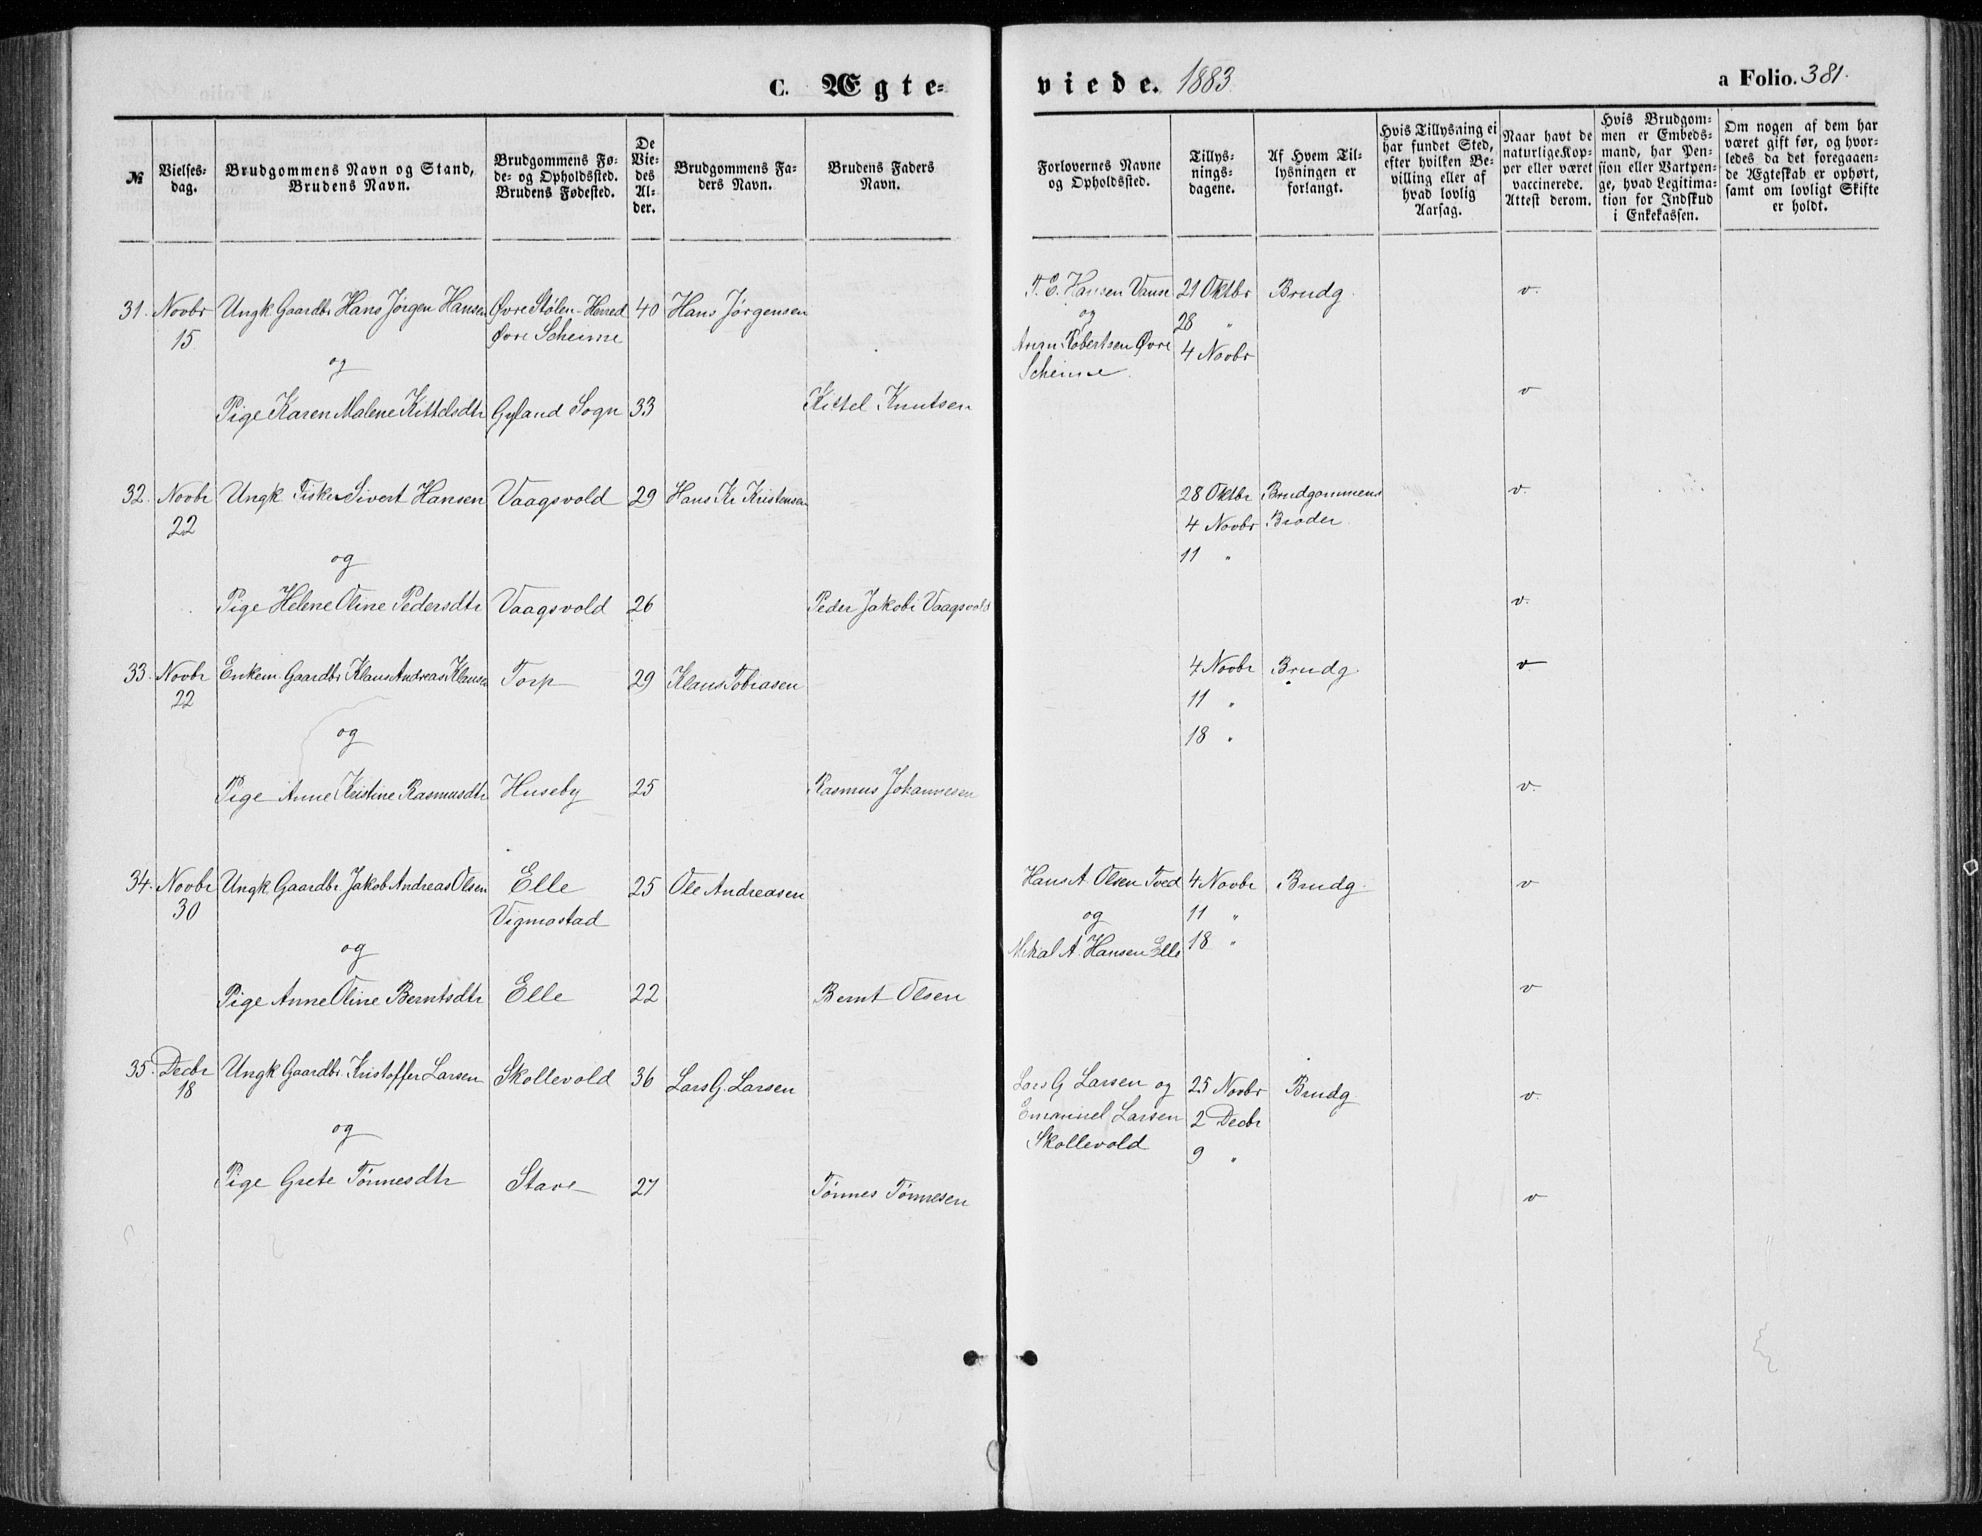 C. Ægte-
viede. 1883
a Folio. 381.
№
Vielses-
dag.
Brudgommens Navn og Stand,
Brudens Navn.
Brudgommens Fø-
de- og Opholdssted.
Brudens Fødested.
De
Vie-
des
Al-
der.
Brudgommens Fa-
ders Navn.
Brudens Faders
Navn.
Forlovernes Navne
og Opholdssted.
Tillys-
nings-
dagene.
Af Hvem Til-
lysningen er
forlangt.
Hvis Tillysning ei
har fundet Sted,
efter hvilken Be-
villing eller af
hvad lovlig
Aarsag.
Naar havt de
naturlige Kop-
per eller været
vaccinerede.
Attest derom.
Hvis Brudgom-
men er Embeds-
mand, har Pen-
sion eller Vartpen-
ge, hvad Legitima-
tion for Indskud
i Enkekassen.
Om nogen af dem har
været gift før, og hvor-
ledes da det foregaaen-
de Ægteskab er ophørt,
samt om lovligt Skifte
er holdt.
31. Novbr Ungk Gaardbr Hans Jørgen Hansen Øvre Stølen-Herred 40 Hans Jørgensen T. E. Hansen Vanse 21 Oktbr Brudg. v.
15 Øvre Scheime og 28 "
og Robertsen Øvre 4 Novbr
Scheime
Pige Karen Malene Kittelsdtr Gyland Sogn 33 Kittel Knutsen v
32. Novbr Ungk Fisker Sivert Hansen Vaagsvold 29 Hans Kr Kristensen 28 Oktbr Brudgommens v.
22 4 Novbr Broder.
og 11 "
Pige Helene Oline Pedersdtr Vaagsvold 26 Peder Jakobs Vaagsvold v.
33. Novbr Enkem. Gaardbr Klaus Andreas Klausen Torp 29 Klaus Tobiasen 4 Novbr Brudg. v
22 11 "
og 18 "
Pige Anne Kristine Rasmusdtr Huseby 25 Rasmus Johannesen v.
34. Novbr Ungk. Gaardbr Jakob Andreas Olsen Elle 25 Ole Andreasen Hans A. Olsen Tved 4 Novbr Brudg. v
30 Vigmostad og 11 "
og Mikal A. Hansen Elle 18 "
Pige Anne Oline Berntsdtr Elle 22 Bernt Olsen v
35. Decbr Ungk Gaardbr Kristoffer Larsen Skollevold 36 Lars G. Larsen Lars G Larsen og 25 Novbr Brudg v
18 Emanuel Larsen 2 Decbr
og Skollevold 9 "
Pige Grete Tønnesdtr Stave 27 Tønnes Tønnesen v